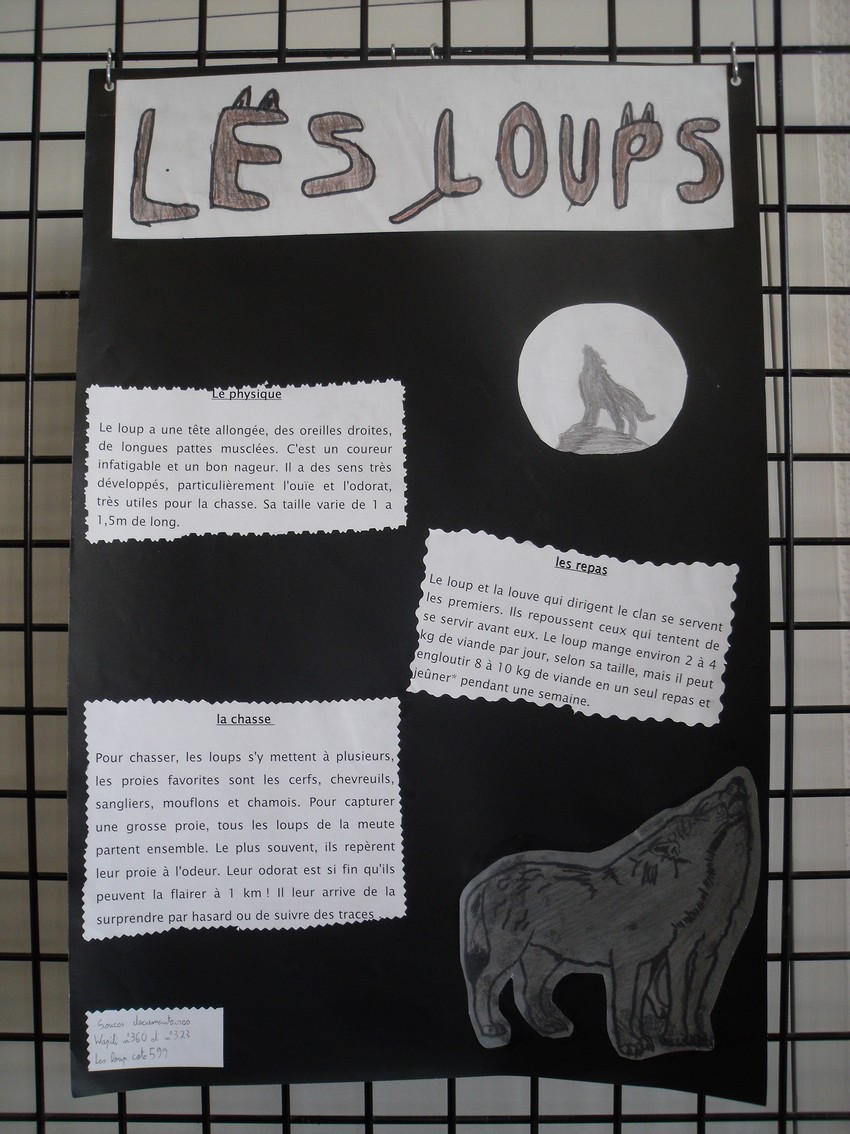 LES LOUPS
Le physique
Le loup a une tête allongée, des oreilles droites,
de longues pattes musclées. C'est un coureur
infatigable et un bon nageur. Il a des sens très
développés, particulièrement l'ouïe et l'odorat,
très utiles pour la chasse. Sa taille varie de 1 a
1,5m de long.
les repas
Le loup et la louve qui dirigent le clan se servent
les premiers. Ils repoussent ceux qui tentent de
se servir avant eux. Le loup mange environ 2 à 4
kg de viande par jour, selon sa taille, mais il peut
engloutir 8 à 10 kg de viande en un seul repas et
jeûner* pendant une semaine.
la chasse
Pour chasser, les loups s'y mettent à plusieurs,
les proies favorites sont les cerfs, chevreuils,
sangliers, mouflons et chamois. Pour capturer
une grosse proie, tous les loups de la meute
partent ensemble. Le plus souvent, ils repèrent
leur proie à l'odeur. Leur odorat est si fin qu'ils
peuvent la flairer à 1 km ! Il leur arrive de la
surprendre par hasard ou de suivre des traces
documentaires
n°360 et n°323
Les loup cote 599